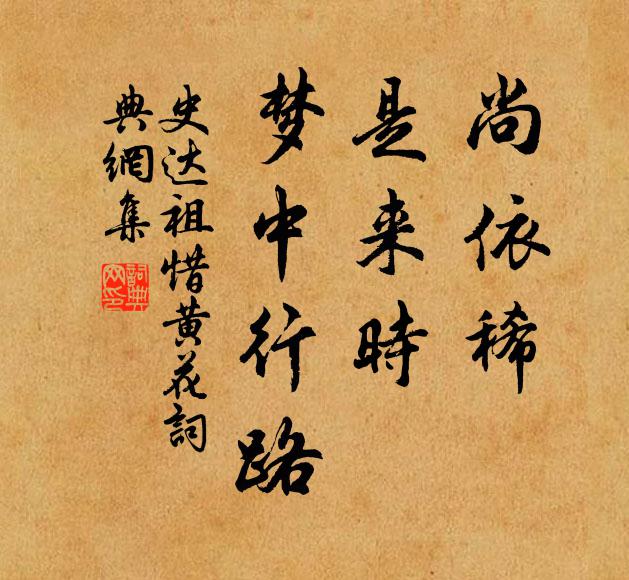 尚依稀
是来時
梦中行路
史达祖惜黄花詞
典網集
詞典
网印